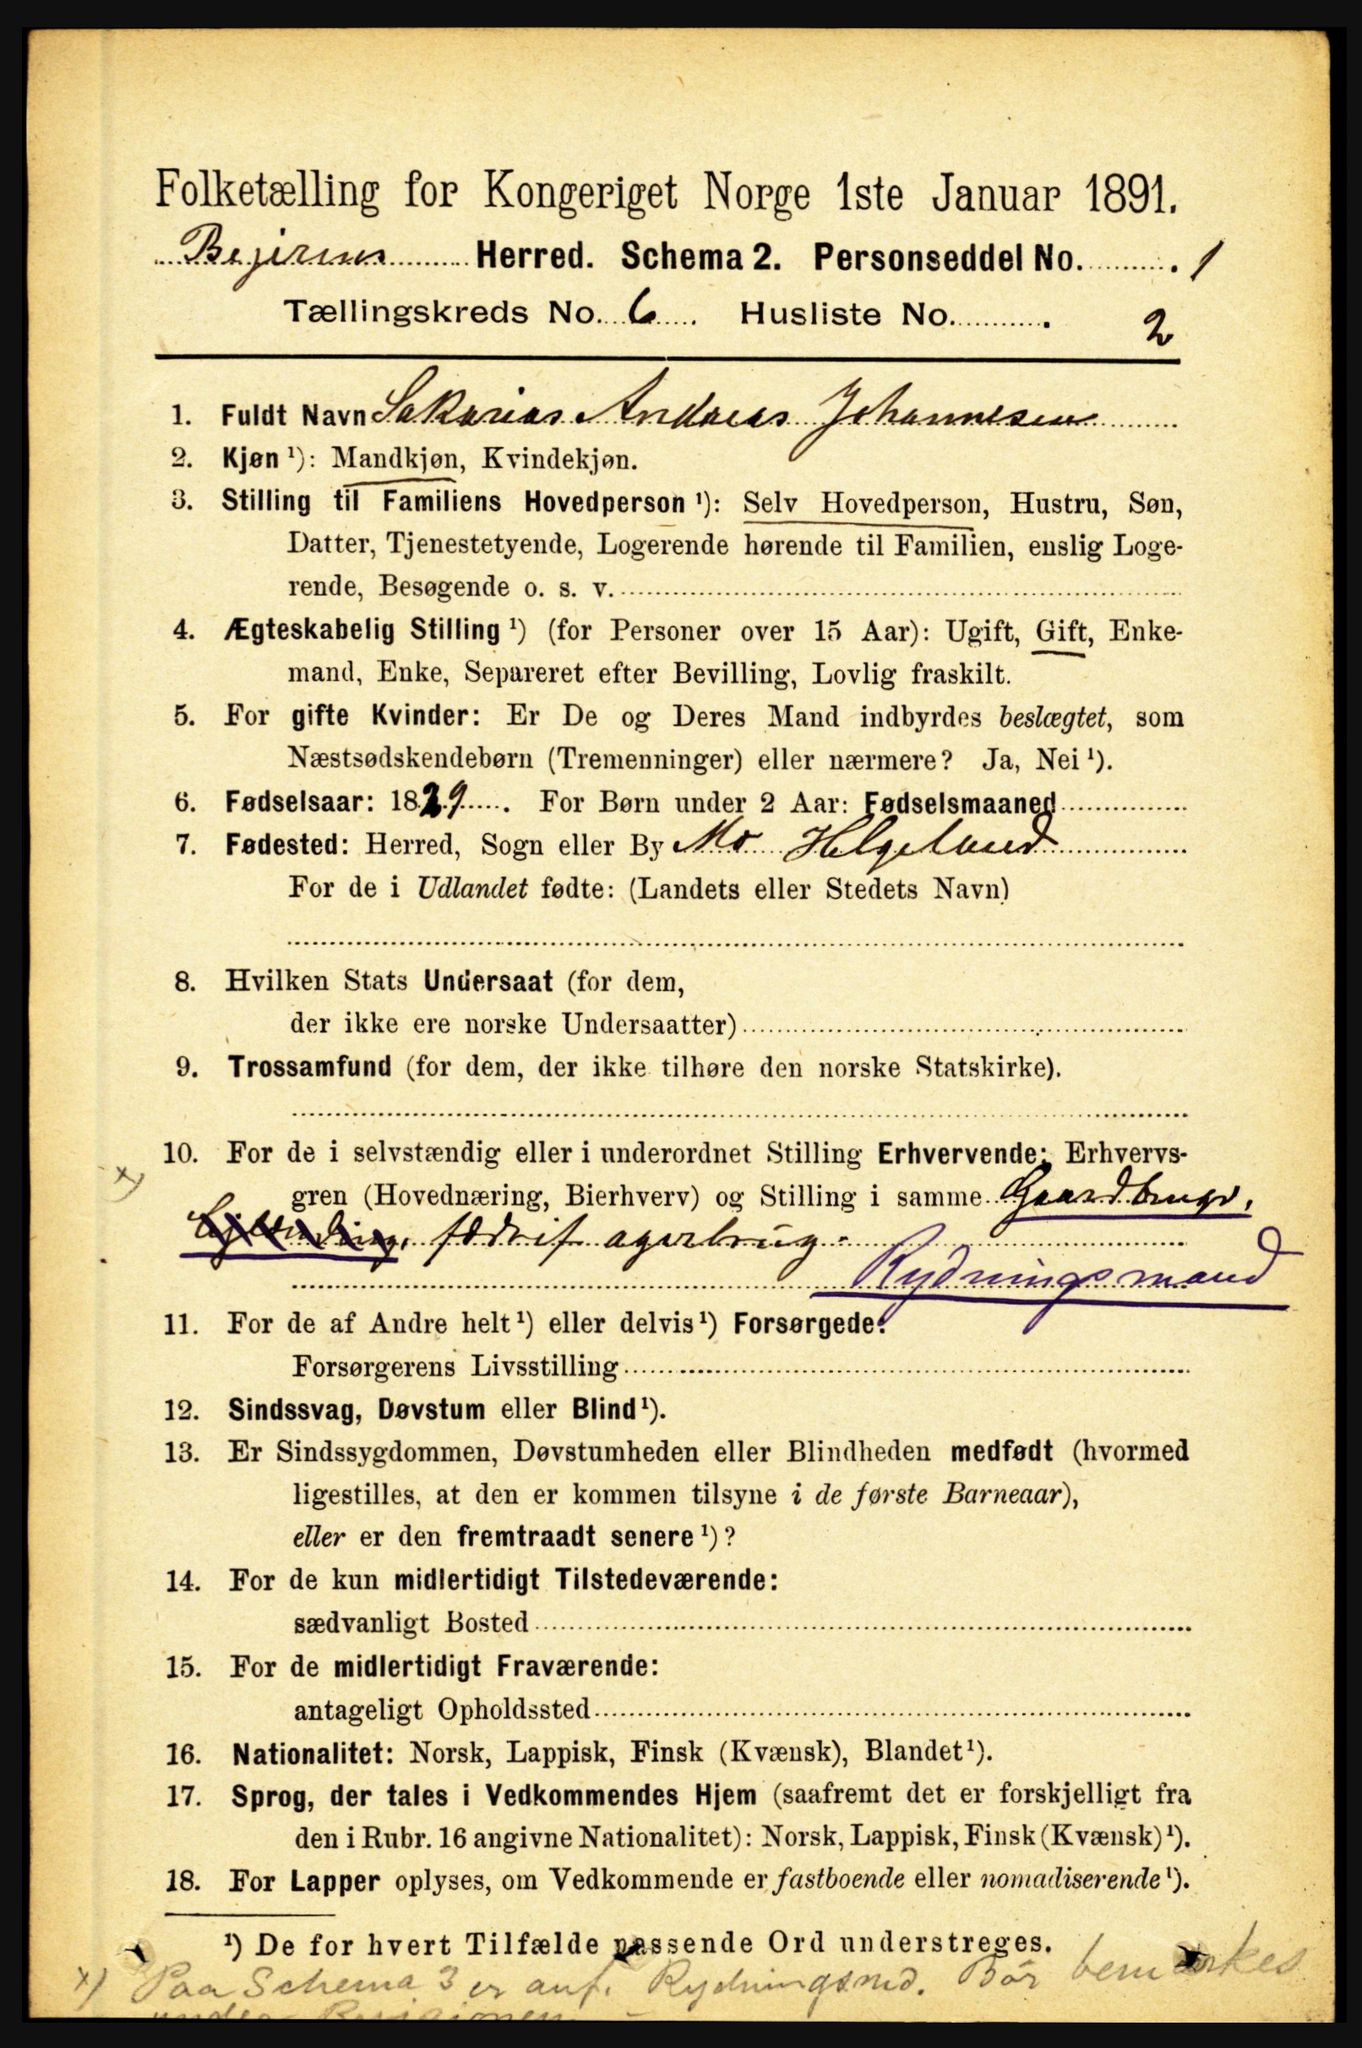 Folketælling for Kongeriget Norge 1ste Januar 1891.
Bejeren Herred. Schema 2. Personseddel No. 1
Tællingskreds No. 6. Husliste No. 2
1. Fuldt Navn Sakarias Andreas Johannesen
2. Kjøn ¹): Mandkjøn, Kvindekjøn.
3. Stilling til Familiens Hovedperson ¹): Selv Hovedperson, Hustru, Søn,
Datter, Tjenestetyende, Logerende hørende til Familien, enslig Loge-
rende, Besøgende o. s. v.
4. Ægteskabelig Stilling ¹) (for Personer over 15 Aar): Ugift, Gift, Enke-
mand, Enke, Separeret efter Bevilling, Lovlig fraskilt.
5. For gifte Kvinder: Er De og Deres Mand indbyrdes beslægtet, som
Næstsødskendebørn (Tremenninger) eller nærmere? Ja, Nei ¹).
6. Fødselsaar: 1829. For Børn under 2 Aar: Fødselsmaaned
7. Fødested: Herred, Sogn eller By Mo Helgeland
For de i Udlandet fødte: (Landets eller Stedets Navn)
8. Hvilken Stats Undersaat (for dem,
der ikke ere norske Undersaatter)
9. Trossamfund (for dem, der ikke tilhøre den norske Statskirke).
10. For de i selvstændig eller i underordnet Stilling Erhvervende: Erhvervs-
x) gren (Hovednæring, Bierhverv) og Stilling i samme Gaardbruger,
agerbrug.
Rydningsmand
11. For de af Andre helt ¹) eller delvis ¹) Forsørgede:
Forsørgerens Livsstilling
12. Sindssvag, Døvstum eller Blind ¹).
13. Er Sindssygdommen, Døvstumheden eller Blindheden medfødt (hvormed
ligestilles, at den er kommen tilsyne i de første Barneaar),
eller er den fremtraadt senere ¹)?
14. For de kun midlertidigt Tilstedeværende:
sædvanligt Bosted
15. For de midlertidigt Fraværende:
antageligt Opholdssted
16. Nationalitet: Norsk, Lappisk, Finsk (Kvænsk), Blandet ¹).
17. Sprog, der tales i Vedkommendes Hjem (saafremt det er forskjelligt fra
den i Rubr. 16 angivne Nationalitet): Norsk, Lappisk, Finsk (Kvænsk) ¹).
18. For Lapper oplyses, om Vedkommende er fastboende eller nomadiserende ¹).
¹) De for hvert Tilfælde passende Ord understreges.
x) Paa Schema 3 er anf. Rydningsmd. Bør bemærkes
under Revisionen